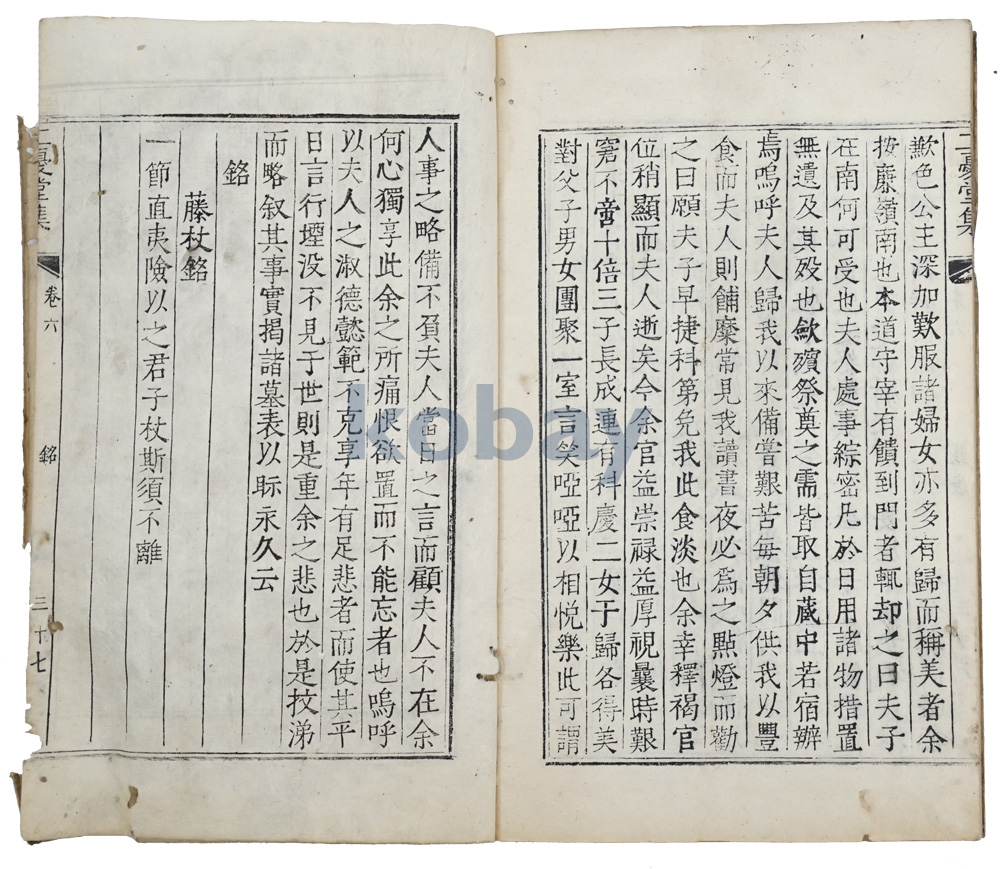 二憂堂集
歉色公主深加歎服諸婦女亦多有歸而稱美者余
按廉嶺南也本道守宰有饋到閽者輒却之曰夫子
在南何可受也夫人處事綜密凡於日用諸物措置
無遺及其歿也斂殯祭奠之需皆取自藏中若宿辦
焉嗚呼夫人歸我以來備嘗艱苦每朝夕供我以豐
食而夫人則餔糜常見我讀書夜必爲之點燈而勸
之曰願夫子早捷科第免我此食淡也余幸釋褐官
位稍顯而夫人逝矣今余官益崇祿益厚視曩時艱
窘不啻十倍三子長成連有科慶二女于歸各得美
對父子男女團聚一室言笑啞啞以相悅樂此可謂
人事之略備不負夫人當日之言而顧夫人不在余
何心獨享此余之所痛恨欲置而不能忘者也嗚呼
以夫人之淑德懿範不克享年有足悲者而使其平
日言行堙没不見于世則是重余之悲也於是抆涕
而略叙其事實揭諸墓表以眎永久云
銘
藤杖銘
一節直夷險以之君子杖斯須不離
二憂堂集 卷六 銘 三十七
kobay